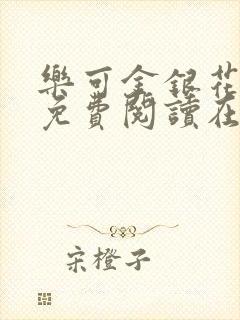 樂可金銀花
免費閱讀在
宋橙子